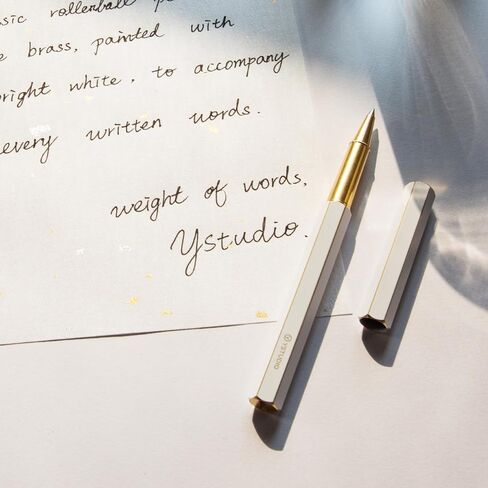 sic rollerball
brass, painted with
bright white, to accompany
every written words.
weight of words,
Ystudio.
YSTUDIO